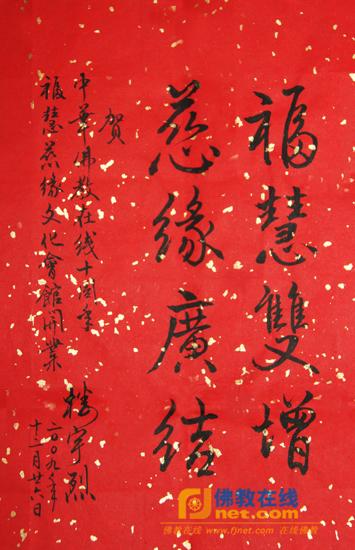 福慧雙增
慈緣廣结
賀
中华佛教在线十周年
福慧慈緣文化會館開業
楼宇烈
二〇〇九年
十二月廿六日
佛教在线
fjnet.com
佛教在线 www.fjnet.com 在线佛教